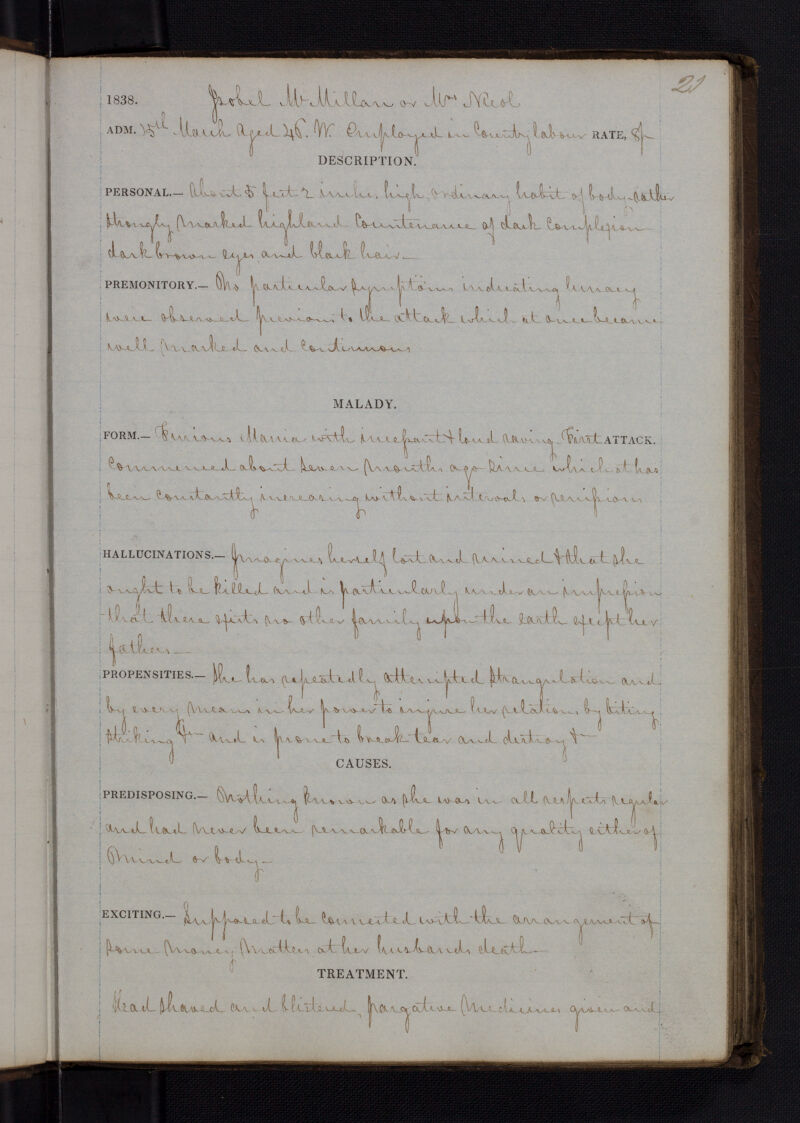 21
1838. Isobel McMillan or Mrs Nicol
ADM. 15th March Aged 46. W. Employed in Country labour RATE,
DESCRIPTION.
PERSONAL.— About 5 feet 2 inches high, ordinary habit of body, rather
strongly marked highland Countenance of dark Complexion
dark brown eyes and black hair—
PREMONITORY.— No particular symptoms indicating lunacy
were observed previous to the attack which at once became
well marked and Continuous
MALADY.
FORM.— Furious Mania with incessant & loud raving. First ATTACK.
Commenced about seven months ago since which it has
been Constantly increasing without intervals or remissions
HALLUCINATIONS.— Imagines herself lost and ruined & that she
ought to be killed and is particularly under an impression
that there exists no other family upon the earth except her
fathers—
PROPENSITIES.— She has repeatedly attempted strangulation and
by every means in her power to injure her relations by biting
striking &c and is prone to break tear and destroy &c
CAUSES.
PREDISPOSING.— Nothing known as she was in all respects regular
and had never been remarkable for any quality either of
Mind or body—
EXCITING.— Supposed to be Connected with the arrangement of
some money matters at her husbands death—
TREATMENT.
Head shaved and blistered, purgative Medicines given and